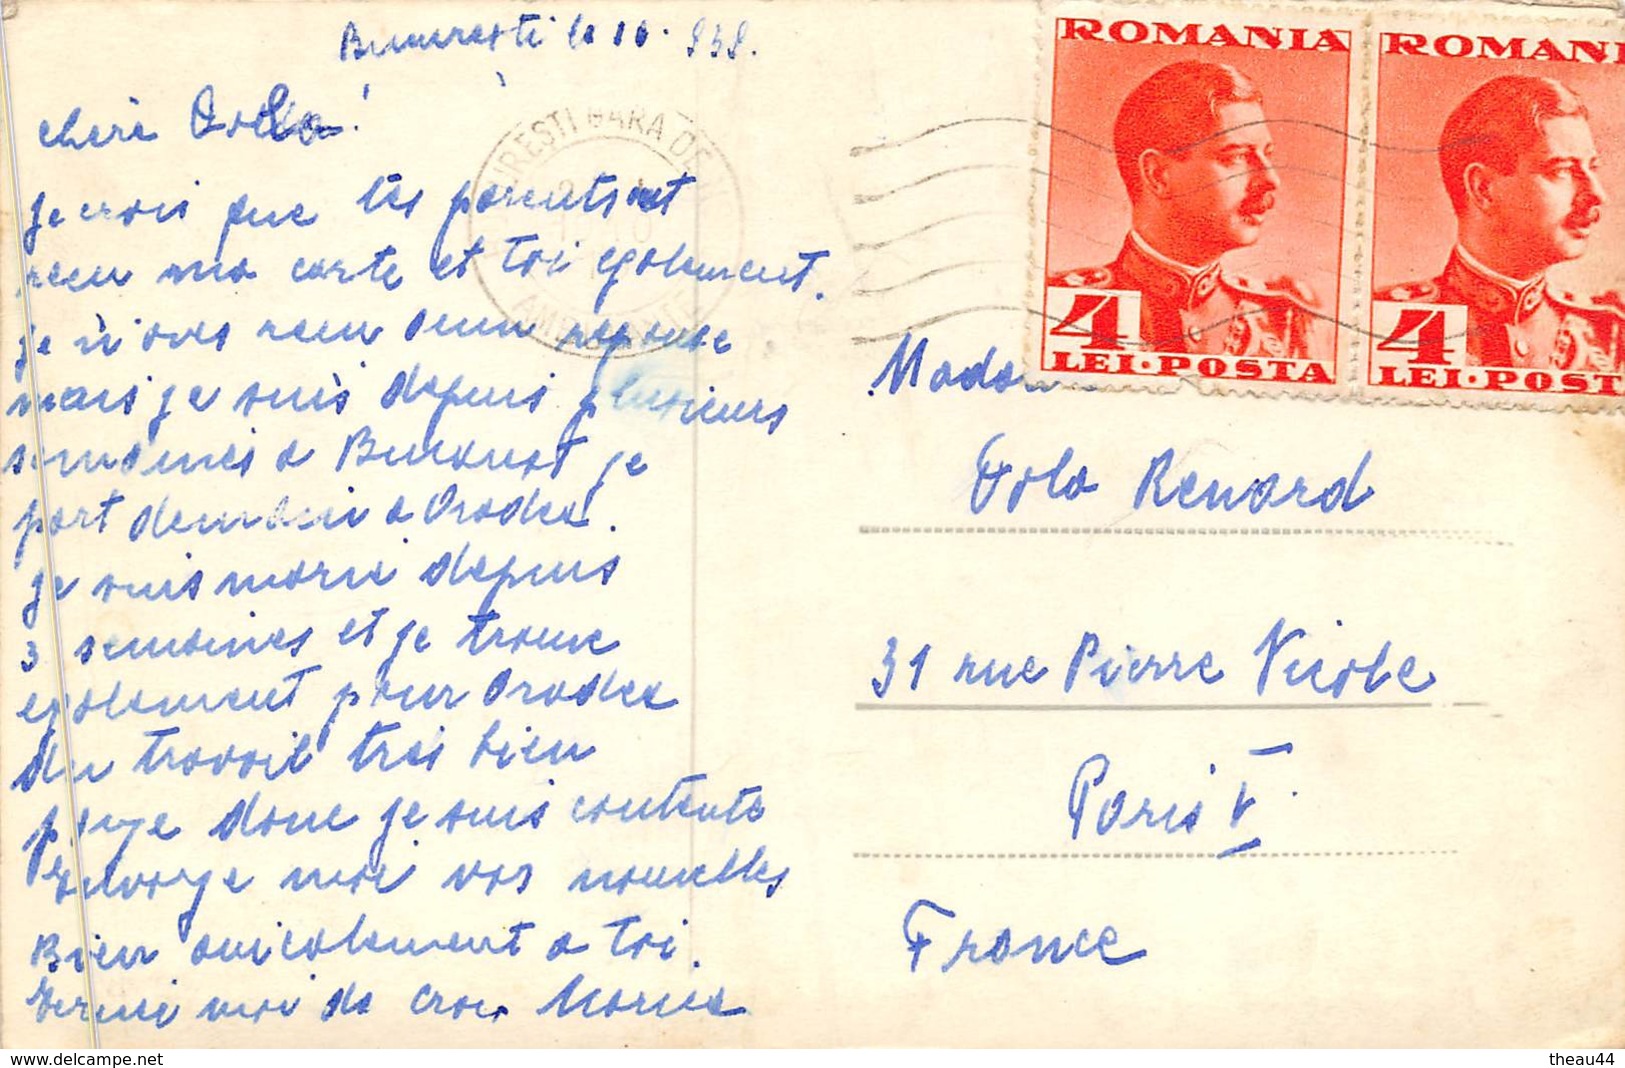 Bucuresti le 10. 938.
cheri Orla!
je crois que tes parents ont
recu ma carte et toi egalement.
je n'oves recu aucun reponse
mais je suis depuis plusieurs
semaines a Bucarest je
part demain a Oradea.
je suis marie depuis
3 semaines et je trouve
egalement pour Oradea
du travail tres bien
paye donc je suis contente
Envoye moi vos nouvelles
Bien amicalement a toi.
ROMANIA
4
LEI·POSTA
ROMANI
4
LEI·POST
BUCURESTI GARA DE
AMBULANTE
Madam
Orla Renard
31 rue Pierre Nicole
Paris V
France
delcampe.net
theau44